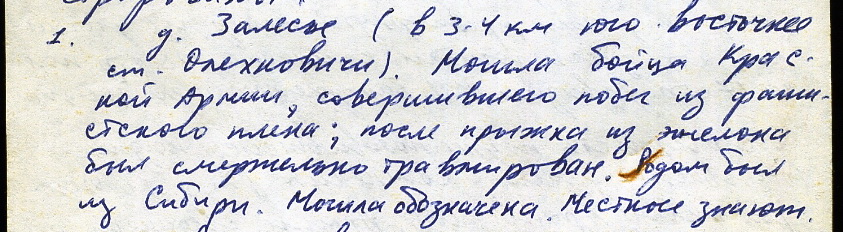 1. д. Залесье (в 3-4 км юго-восточнее
ст. Олехновичи). Могила бойца Крас-
ной Армии, совершившего побег из фаши-
стского плена; после прыжка из эшелона
был смертельно травмирован. Родом был
из Сибири. Могила обозначена. Местные знают.